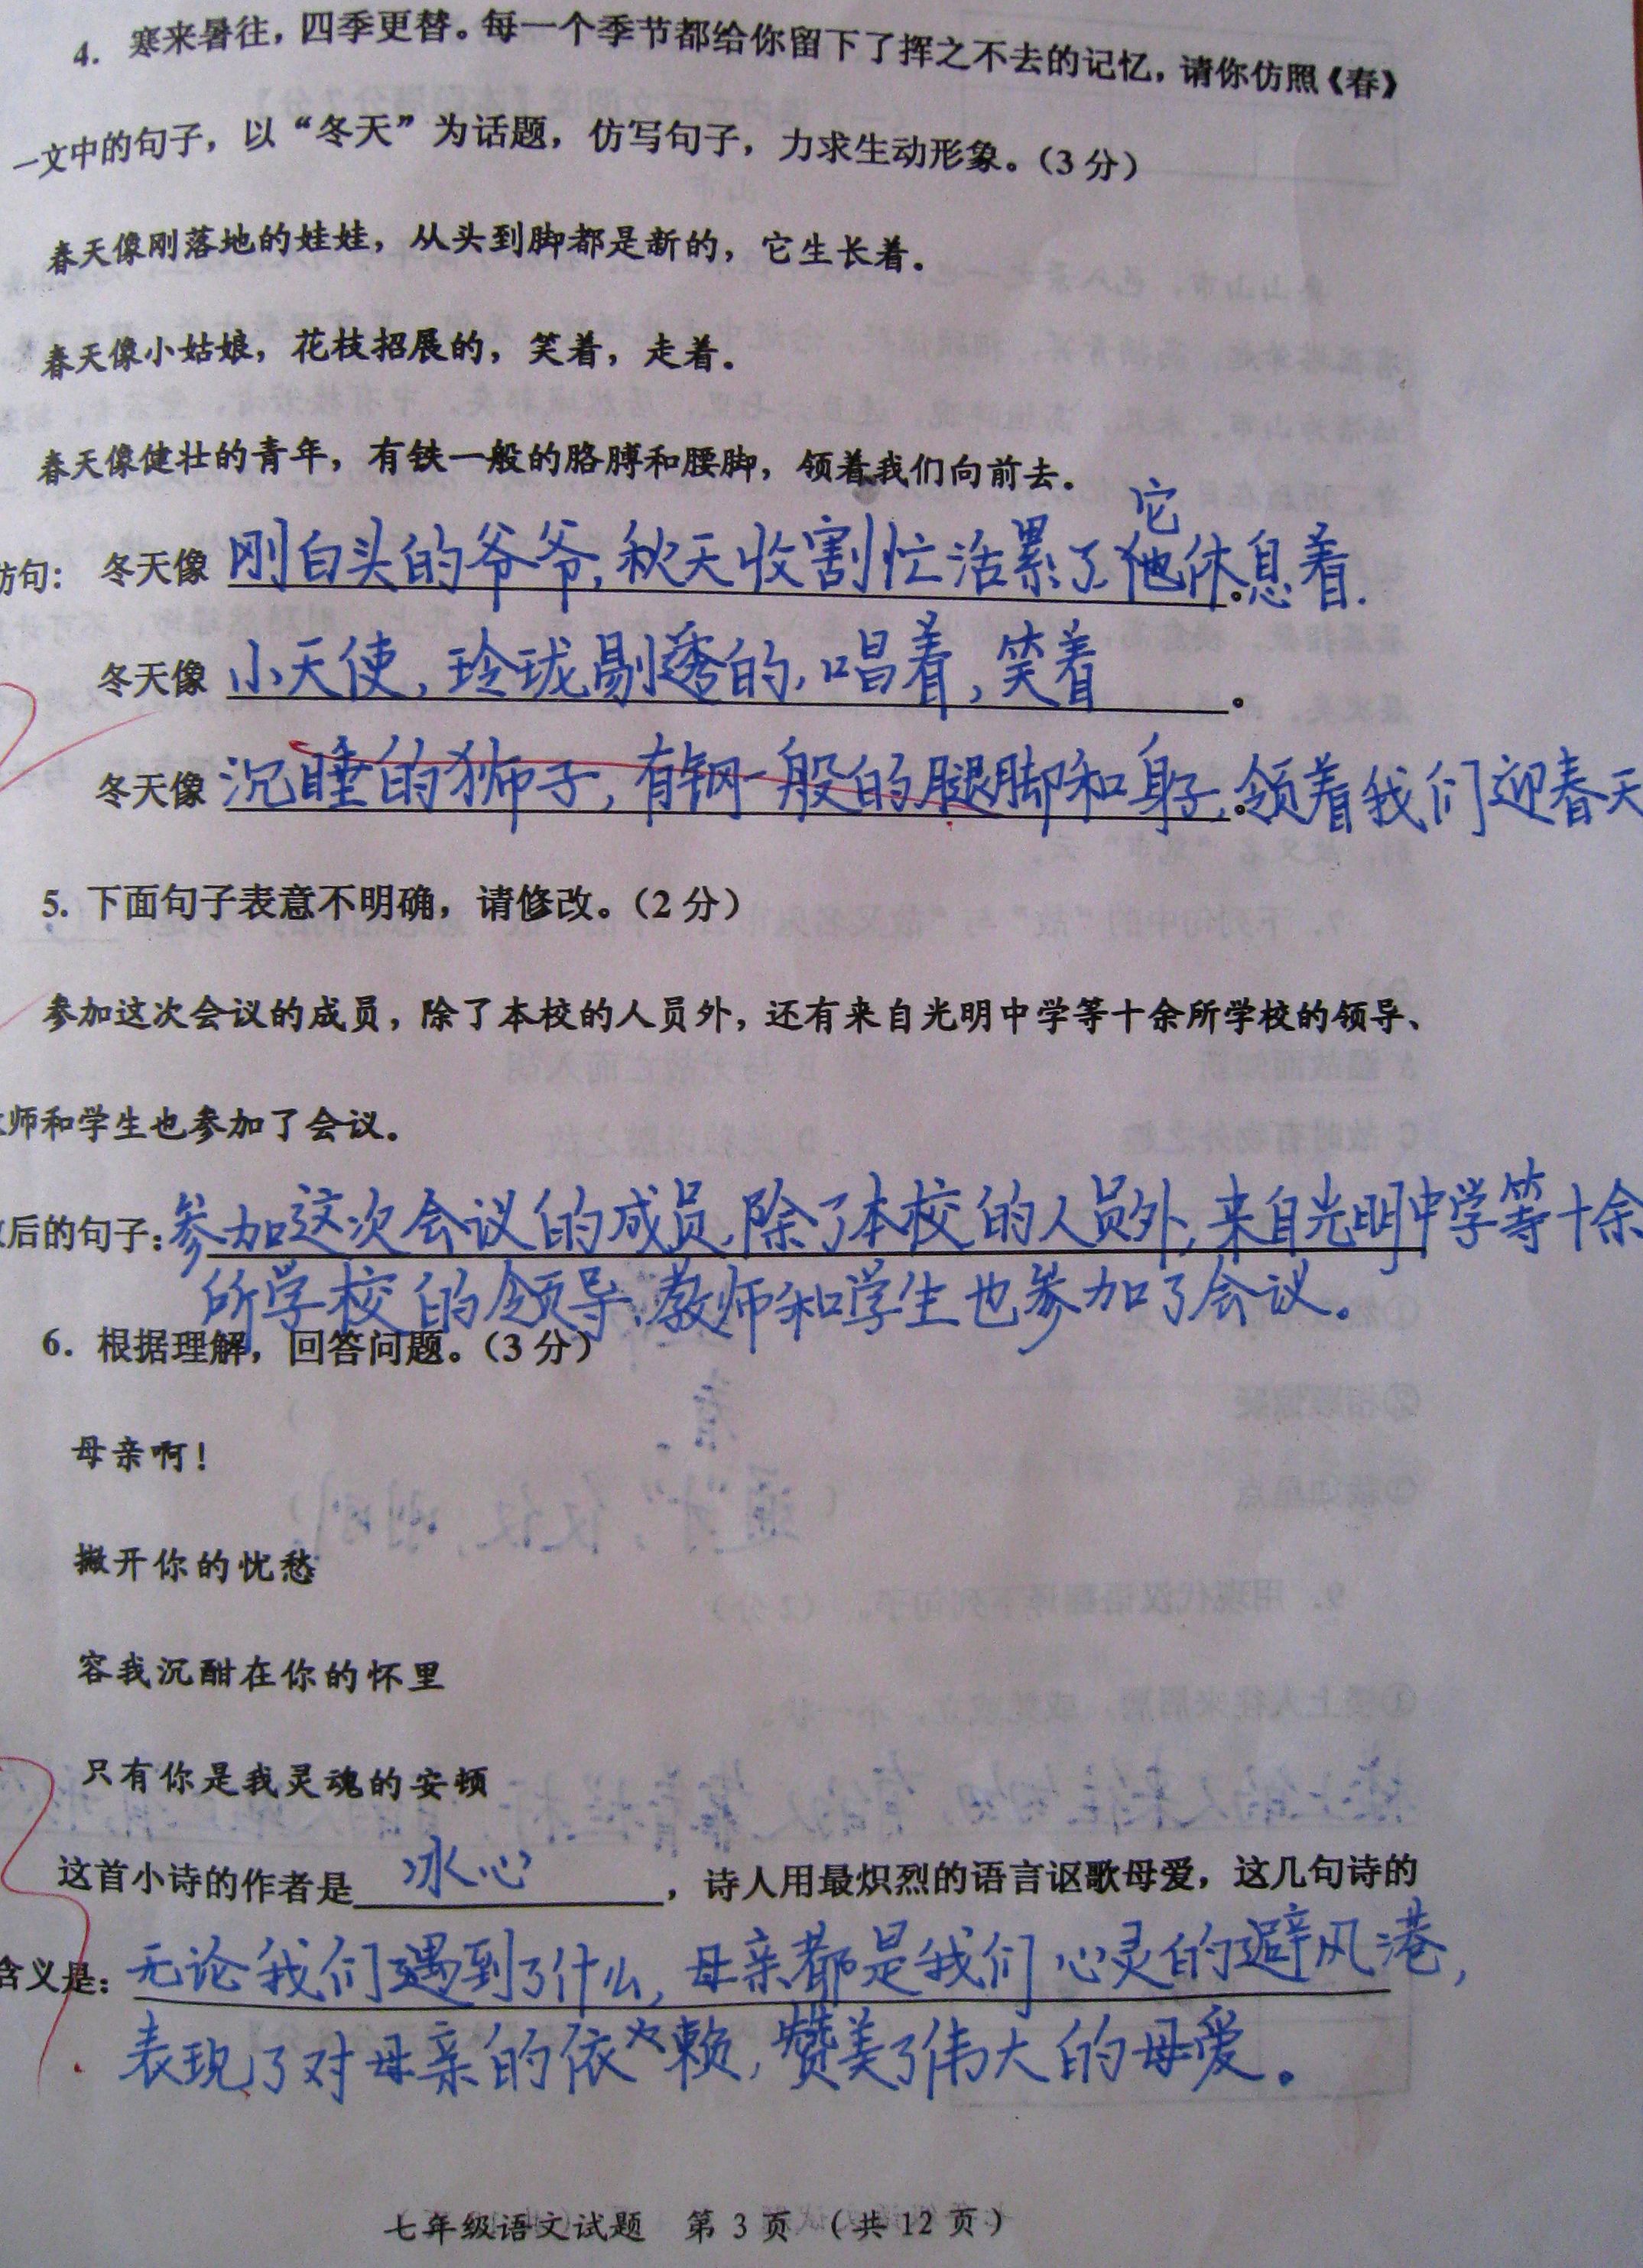 4. 寒来暑往，四季更替。每一个季节都给你留下了挥之不去的记忆，请你仿照《春》
一文中的句子，以“冬天”为话题，仿写句子，力求生动形象。（3 分）
春天像刚落地的娃娃，从头到脚都是新的，它生长着。
春天像小姑娘，花枝招展的，笑着，走着。
春天像健壮的青年，有铁一般的胳膊和腰脚，领着我们向前去。
它
仿句： 冬天像 刚白头的爷爷，秋天收割忙活累了，他休息着.
冬天像 小天使，玲珑剔透的，唱着，笑着 。
冬天像 沉睡的狮子，有钢一般的腿脚和身子，领着我们迎春天
5. 下面句子表意不明确，请修改。（2 分）
参加这次会议的成员，除了本校的人员外，还有来自光明中学等十余所学校的领导、
师和学生也参加了会议。
后的句子：参加这次会议的成员，除了本校的人员外，来自光明中学等十余
所学校的领导、教师和学生也参加了会议。
6. 根据理解，回答问题。（3 分）
母亲啊！
撇开你的忧愁
容我沉酣在你的怀里
只有你是我灵魂的安顿
这首小诗的作者是 冰心 ，诗人用最炽烈的语言讴歌母爱，这几句诗的
含义是：无论我们遇到了什么，母亲都是我们心灵的避风港，
表现了对母亲的依赖，赞美了伟大的母爱。
七年级语文试题 第 3 页 （共 12 页）